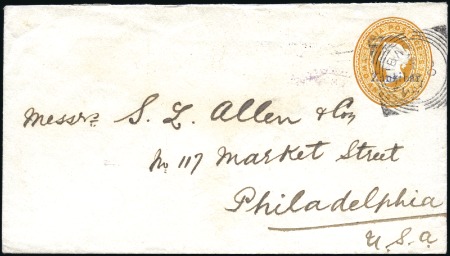 Zanzibar
Messrs S. L. Allen & Coy
No 117 Market Street
Philadelphia
U.S.A